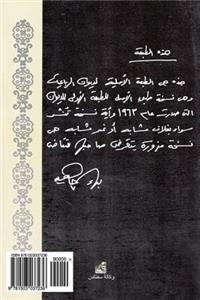 هذه الطبعة
هذه هي الطبعة الأصلية لديوان الرباعيات
وهي نسخة طبق الأصل للطبعة الأولى للديوان
التي صدرت عام ١٩٦٣ وأية نسخة تنشر
سواء بغلاف مشابه أو غير مشابه هي
نسخة مزورة
وكالة سفنكس
90000
9 781503 037236